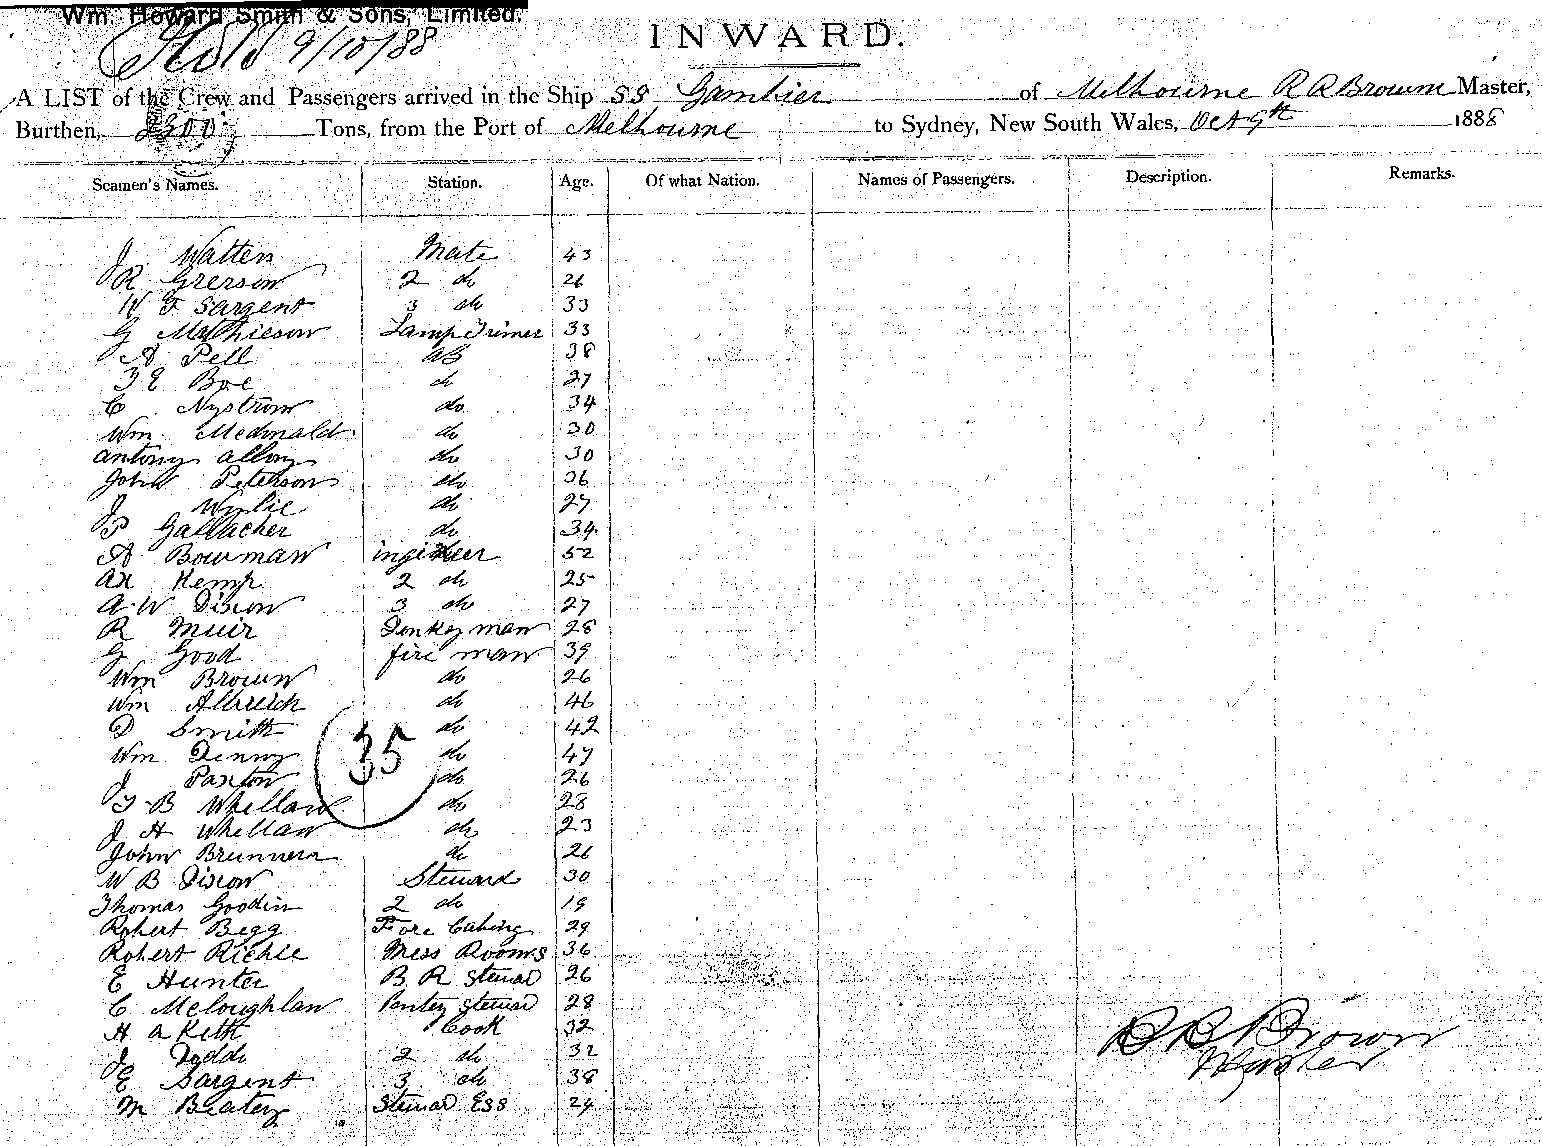 Wm. Howard Smith & Sons, Limited.
9/10/88
INWARD.
A LIST of the Crew and Passengers arrived in the Ship SS Gambier of Melbourne R A Browne Master,
Burthen, 2300 Tons, from the Port of Melbourne to Sydney, New South Wales, Oct 9th 1888
Seamen's Names. Station. Age. Of what Nation. Names of Passengers. Description. Remarks.
J Watten Mate 43
R Grerson 2 do 26
W F Sargent 3 do 33
G Mathieson Lamp Trimer 33
A Pell AB 38
F E Boe do 27
C Nystrom do 34
Wm Mcdonald do 30
antony allon do 30
John Peterson do 36
J Wylie do 27
P Gallacher do 34
A Bowman ingineer 52
AH Kemp 2 do 25
A W Dixon 3 do 27
R Muir Donkey man 28
G Good fire man 39
Wm Brown do 26
Wm Albreich do 46
D Smith do 42
Wm Denny do 47
35
J Paxton do 26
T B Whellan do 28
J H Whellan do 23
John Brunnern do 26
W B Dixon Steward 30
Thomas Goodin 2 do 19
Robert Begg Fore Cabing 29
Robert Richie Mess Rooms 36
E Hunter B. R Steuar 26
C Mcloughlan Pantey Steuar 28
H A Keith Cook 32
J Dodds 2 do 32
E Sargent 3 do 38
M Beatey Steuar Ess 24
R A Brown
Master